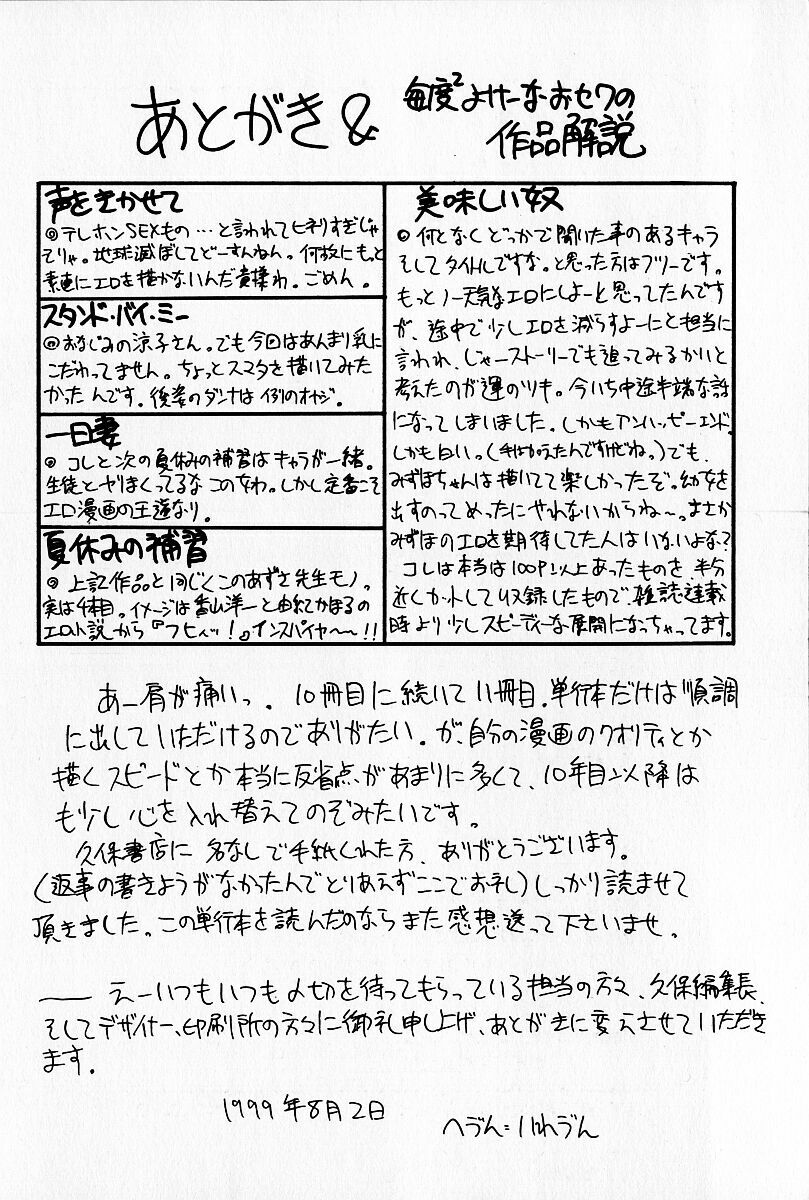 あとがき&
毎度²よけーなおセワの
作品解説
声をきかせて
◎テレホンSEXもの…と言われてヒネリすぎじゃ
そりゃ。地球滅ぼしてどーすんねん。何故にもっと
素直にエロを描かないんだ貴様わ。ごめん。
スタンド・バイ・ミー
◎おなじみの涼子さん。でも今回はあんまり乳に
こだわってません。ちょっとスマタを描いてみた
かったんです。後姿のダンナは例のオヤジ。
一日妻
◎コレと次の夏休みの補習はキャラが一緒。
生徒とヤりまくってるなこの女わ。しかし定番こそ
エロ漫画の王道なり。
夏休みの補習
◎上記作品と同じくこのあずさ先生モノ。
実は1本目。イメージは香山洋一と由紀かほるの
エロ小説から『フヒィッ!』インスパイヤ~~!!
美味しい奴
◎何となくどっかで聞いた事のあるキャラ
そしてタイトルですな。と思った方はフツーです。
もっとノー天気なエロにしよーと思ってたんです
が、途中で少しエロを減らすよーにと担当に
言われ、じゃーストーリーでも追ってみるかいと
考えたのが運のツキ。今いち中途半端な話
になってしまいました。しかもアンハッピーエンド。
しかも白い。(手は加えたんですけどね。)でも、
みずほちゃんは描いてて楽しかったぞ。幼女を
出すのってめったにやれないからね~。まさか
みずほのエロを期待してた人はいないよな?
コレは本当は100P以上あったものを半分
近くカットして収録したもので、雑誌連載
時より少しスピーディーな展開になっちゃってます。
あー肩が痛いっ。10冊目に続いて11冊目。単行本だけは順調
に出していただけるのでありがたい。が、自分の漫画のクオリティとか
描くスピードとか本当に反省点があまりに多くて、10年目以降は
も少し心を入れ替えてのぞみたいです。
久保書店に名なしで手紙くれた方、ありがとうございます。
(返事の書きようがなかったんでとりあえずここでお礼)しっかり読ませて
頂きました。この単行本を読んだのならまた感想送って下さいませ。
―― えーいつもいつも〆切を待ってもらっている担当の方々、久保編集長、
そしてデザイナー、印刷所の方々に御礼申し上げ、あとがきに変えさせていただき
ます。
1999年8月2日
へづん=はれづん